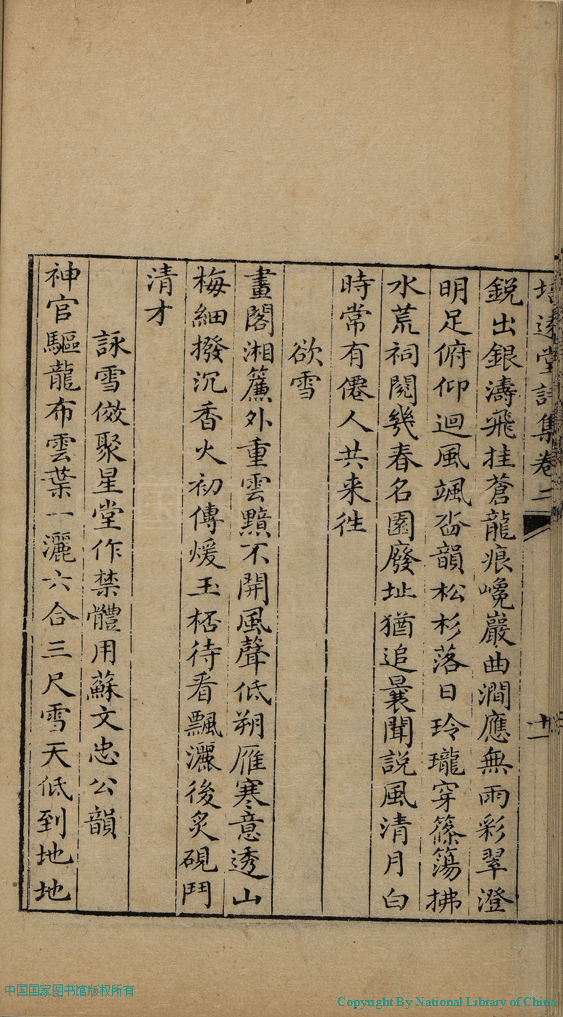 詩集卷二
十一
銳出銀濤飛挂蒼龍痕巉巖曲澗應無雨彩翠澄
明足俯仰迴風颯沓韻松杉落日玲瓏穿篠簜拂
水荒祠閱幾春名園廢址猶追曩聞說風清月白
時常有僊人共来徃
欲雪
畫閣湘簾外重雲黯不開風聲低朔雁寒意透山
梅細撥沉香火初傳煖玉桮待看飄灑後炙硯鬥
清才
詠雪傚聚星堂作禁體用蘇文忠公韻
神官驅龍布雲葉一灑六合三尺雪天低到地地
中国国家图书馆版权所有
Copyright By National Library of China